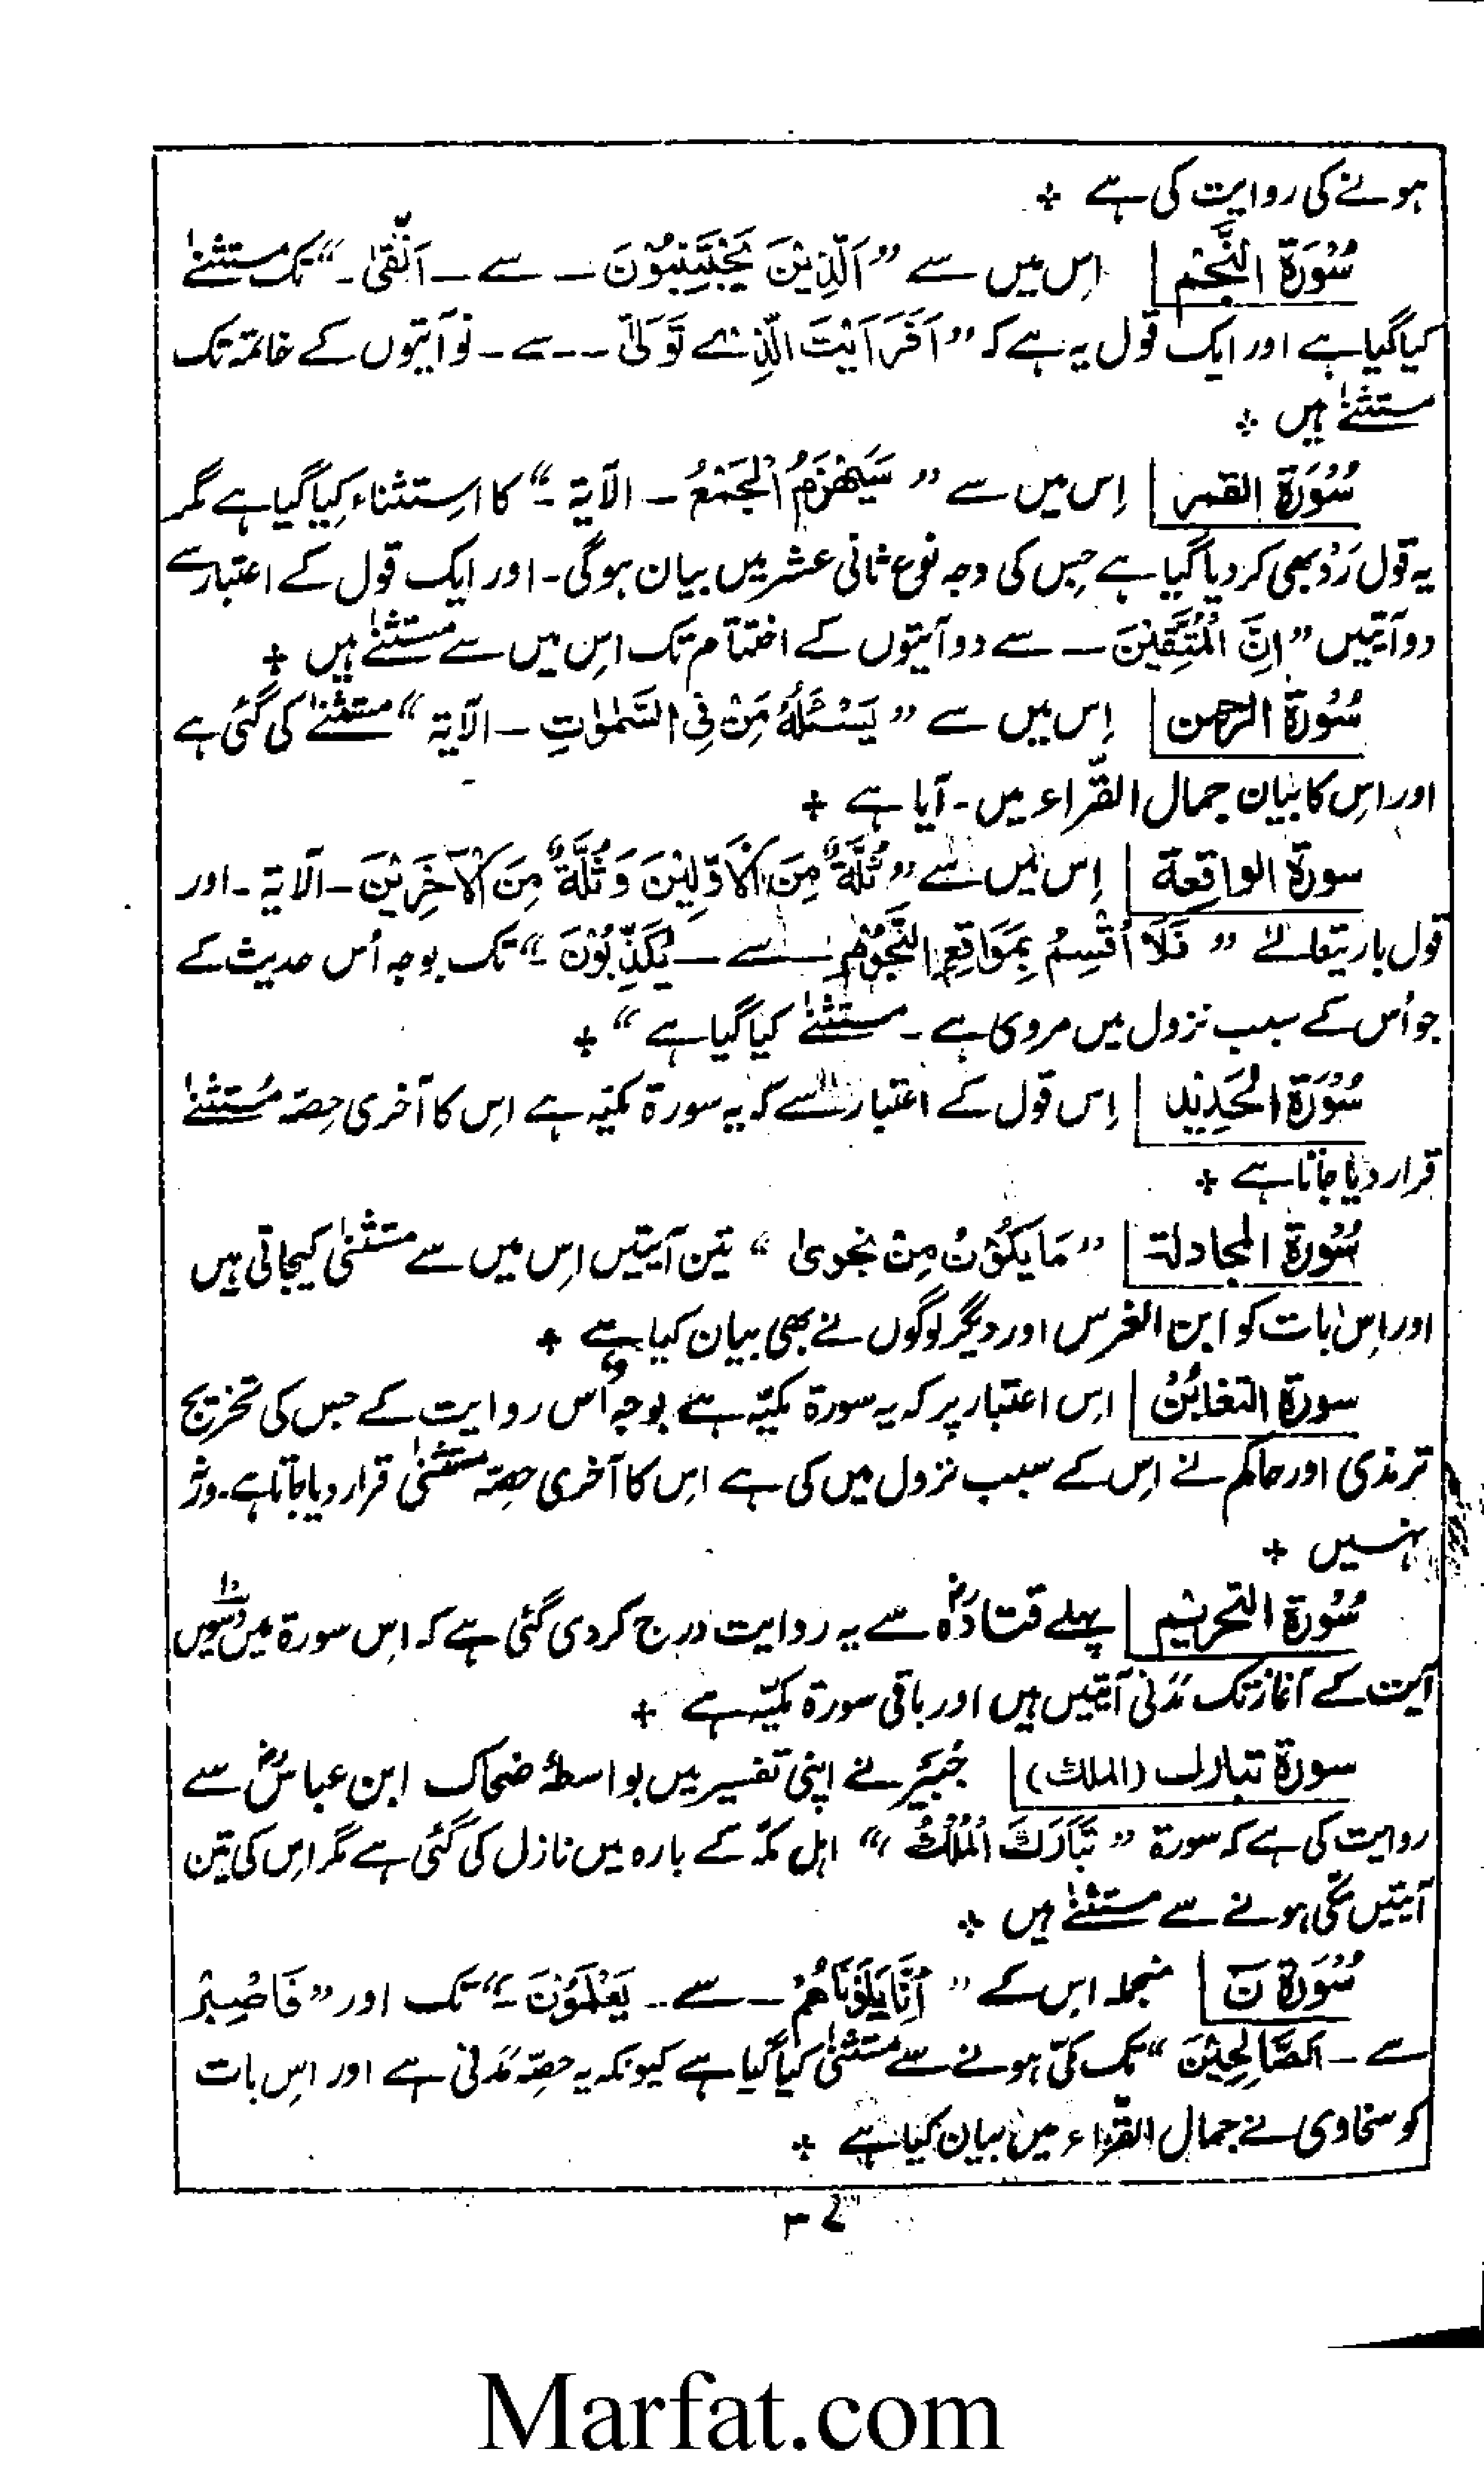 ہونے کی روایت کی ہے ÷
سُوْرَۃ النَّجْم اِس میں سے ”اَلَّذِیْنَ یَجْتَنِبُوْنَ ــ سے ــ اَتَّقٰی ــ“ تک مستثنٰے
کیا گیا ہے اور ایک قول یہ ہے کہ ”اَفَرَاَیْتَ الَّذِیْ تَوَلّٰی ـ ـ سے ـ نو آیتوں کے خاتمہ تک
مستثنٰے ہیں ÷
سُوْرَۃ القمر اِس میں سے ” سَیُھْزَمُ الْجَمْعُ ــ الآیۃ ــ“ کا استثناء کیا گیا ہے مگر
یہ قول رَدْ بھی کر دیا گیا ہے جس کی وجہ نوع ثانی عشر میں بیان ہوگی ـ اور ایک قول کے اعتبار سے
دو آیتیں ”اِنَّ الْمُتَّقِیْنَ ــ سے دو آیتوں کے اختتام تک اِس میں سے مستثنٰے ہیں ÷
سُوْرَۃ الرحمن اِس میں سے ” یَسْئَلُہٗ مَنْ فِی السَّمٰوٰتِ ــ الآیۃ “ مستثنٰے کی گئی ہے
اور اِس کا بیان جمال القُرّاء میں ـ آیا ہے ÷
سورۃ الواقِعۃ اِس میں سے ” ثُلَّۃٌ مِنَ الْاَوَّلِیْنَ وَثُلَّۃٌ مِنَ الْاٰخَرِیْنَ ــ الآیۃ ـ اور
قول باریتعالےٰ ” فَلَا اُقْسِمُ بِمَوَاقِعِ النُّجُوْمِ ــ سے ــ تُکَذِّبُوْنَ ــ“ تک بوجہ اُس حدیث کے
جو اُس کے سبب نزول میں مروی ہے ـ مستثنٰے کیا گیا ہے “ ÷
سُوْرَۃ الحَدِیْد اِس قول کے اعتبار سے کہ یہ سورۃ مکیّہ ہے اِس کا آخری حِصّہ مُستثنٰے
قرار دیا جاتا ہے ÷
سُوْرۃ المجادلۃ ” مَا یَکُوْنُ مِنْ نجویٰ “ تین آیتیں اِس میں سے مستثنٰی کیجاتی ہیں
اور اِس بات کو ابن الغرس اور دیگر لوگوں نے بھی بیان کیا ہے ÷
سورۃ التغابُنْ اِس اعتبار پر کہ یہ سورۃ مکیّہ ہے بوجہ اُس روایت کے جس کی تخریج
ترمذی اور حاکم نے اِس کے سبب نزول میں کی ہے اِس کا آخری حِصّہ مستثنٰی قرار دیا جاتا ہے ـ ورنہ
نہیں ÷
سُوْرَۃ التحریْم پہلے قتادہؓ سے یہ روایت درج کر دی گئی ہے کہ اِس سورۃ میں دسویں
آیت کے آغاز تک مَدَنی آیتیں ہیں اور باقی سورۃ مکیّہ ہے ÷
سورۃ تبارک (الملک) جُبَیْر نے اپنی تفسیر میں بواسطۂ ضحاک ابن عباسؓ سے
روایت کی ہے کہ سورۃ ” تَبَارَکَ الْمُلْکُ “ اہل مکّہ کے بارہ میں نازل کی گئی ہے مگر اِس کی تین
آیتیں مکّی ہونے سے مستثنٰے ہیں ÷
سُوْرَۃ نٓ منجملہ اِس کے ” اِنَّا بَلَوْنَاھُمْ ــ سے ــ یَعْلَمُوْنَ ــ“ تک اور ” فَاصْبِرْ
سے ــ الصَّالِحِیْنَ “ تک مکّی ہونے سے مستثنٰی کیا گیا ہے کیونکہ یہ حِصّہ مَدَنی ہے اور اِس بات
کو سخاوی نے جمال القُرّاء میں بیان کیا ہے ÷
۳۷
Marfat.com